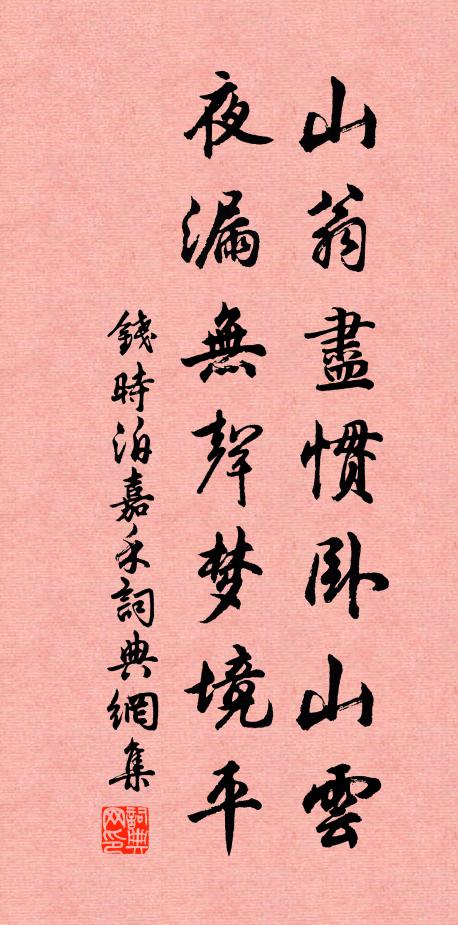 山翁盡慣卧山雲
夜漏無聲梦境平
錢時泊嘉禾詞典網集
詞典网印